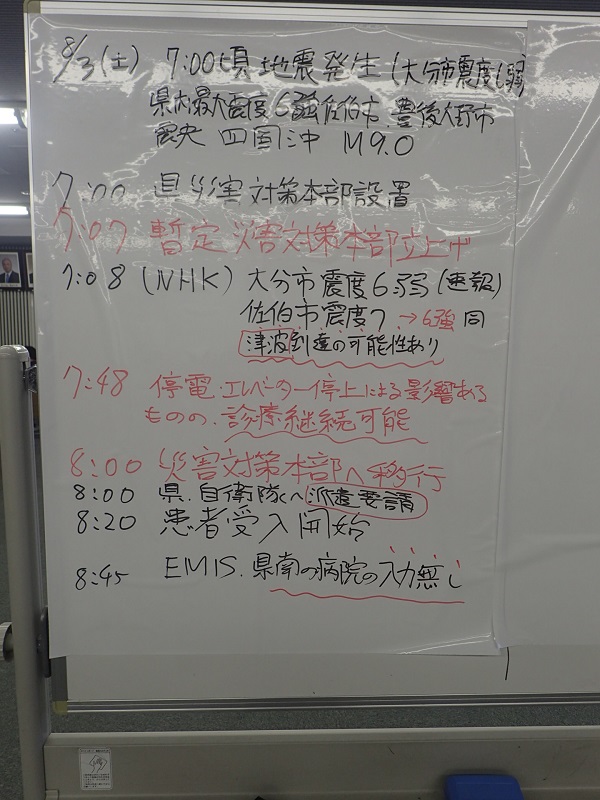 8/3(土) 7:00頃地震発生(大分市震度6弱)
県内最大震度6強佐伯市、豊後大野市
震央 四国沖 M9.0
7:00 県災害対策本部設置
7:07 暫定災害対策本部立上げ
7:08 (NHK) 大分市震度6弱(速報)
佐伯市震度7 →6強 同
津波到達の可能性あり
7:48 停電・エレベーター停止による影響ある
ものの、診療継続可能
8:00 災害対策本部へ移行
8:00 県、自衛隊へ派遣要請
8:20 患者受入開始
8:45 EMIS、県南の病院の入力無し